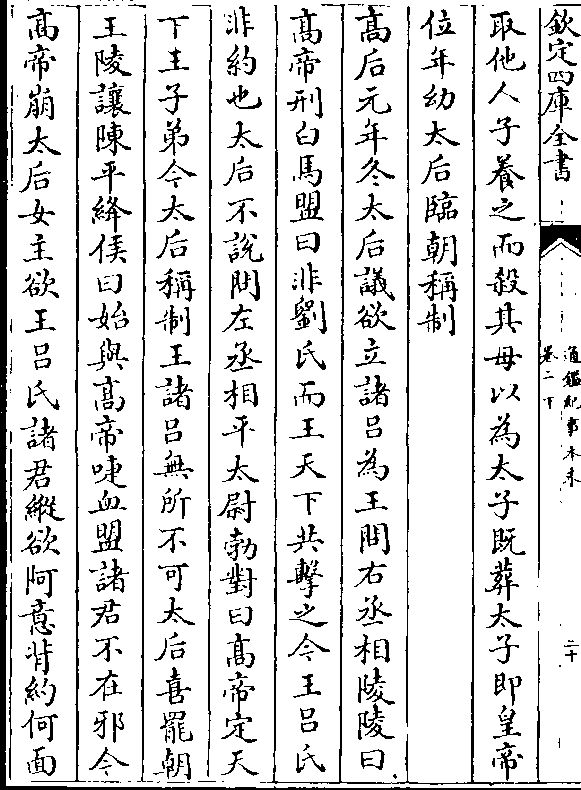 欽定四庫全書
通鑑紀事本末
卷二下
二十
取他人子養之而殺其母以為太子既葬太子即皇帝
位年幼太后臨朝稱制
髙后元年冬太后議欲立諸吕為王問右丞相陵陵曰
髙帝刑白馬盟曰非劉氏而王天下共擊之今王吕氏
非約也太后不說問左丞相平太尉勃對曰髙帝定天
下王子弟今太后稱制王諸吕無所不可太后喜罷朝
王陵讓陳平絳侯曰始與髙帝啑血盟諸君不在邪今
髙帝崩太后女主欲王吕氏諸君縱欲阿意背約何面